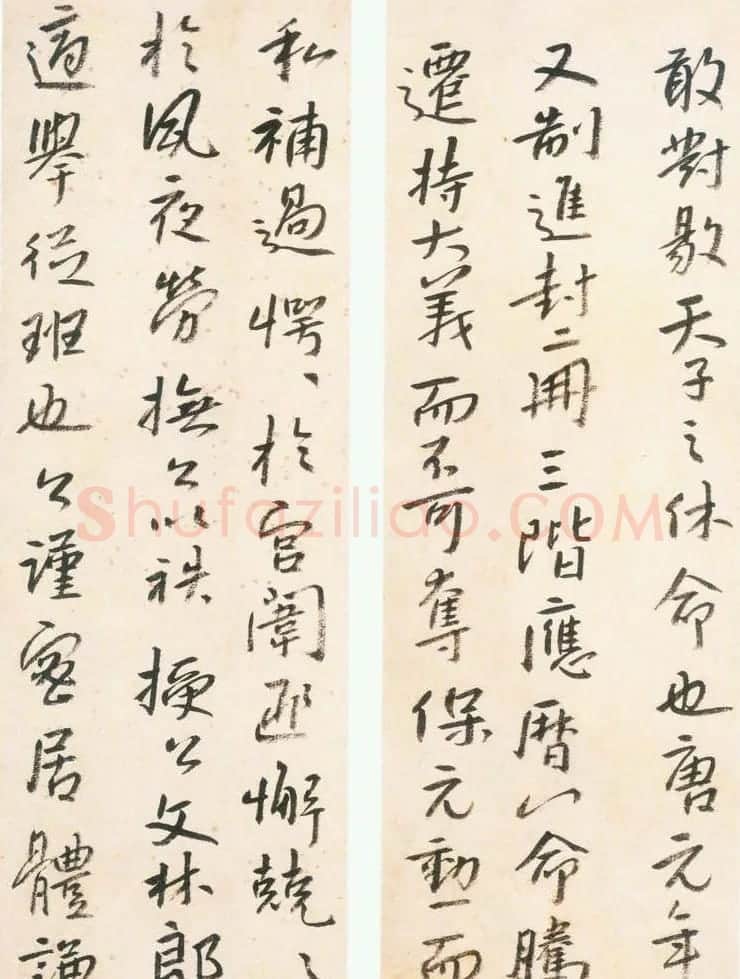 敢對敭天子之休命也唐元年
又制進封二冊三階應曆八命騰
遷持大義而不可奪保元勳一而
私補過愕、於宮闈匪懈兢、
於夙夜勞撫公以袟授公文林郎
適舉從班也公謹密居體謙
Shufaziliao.COM